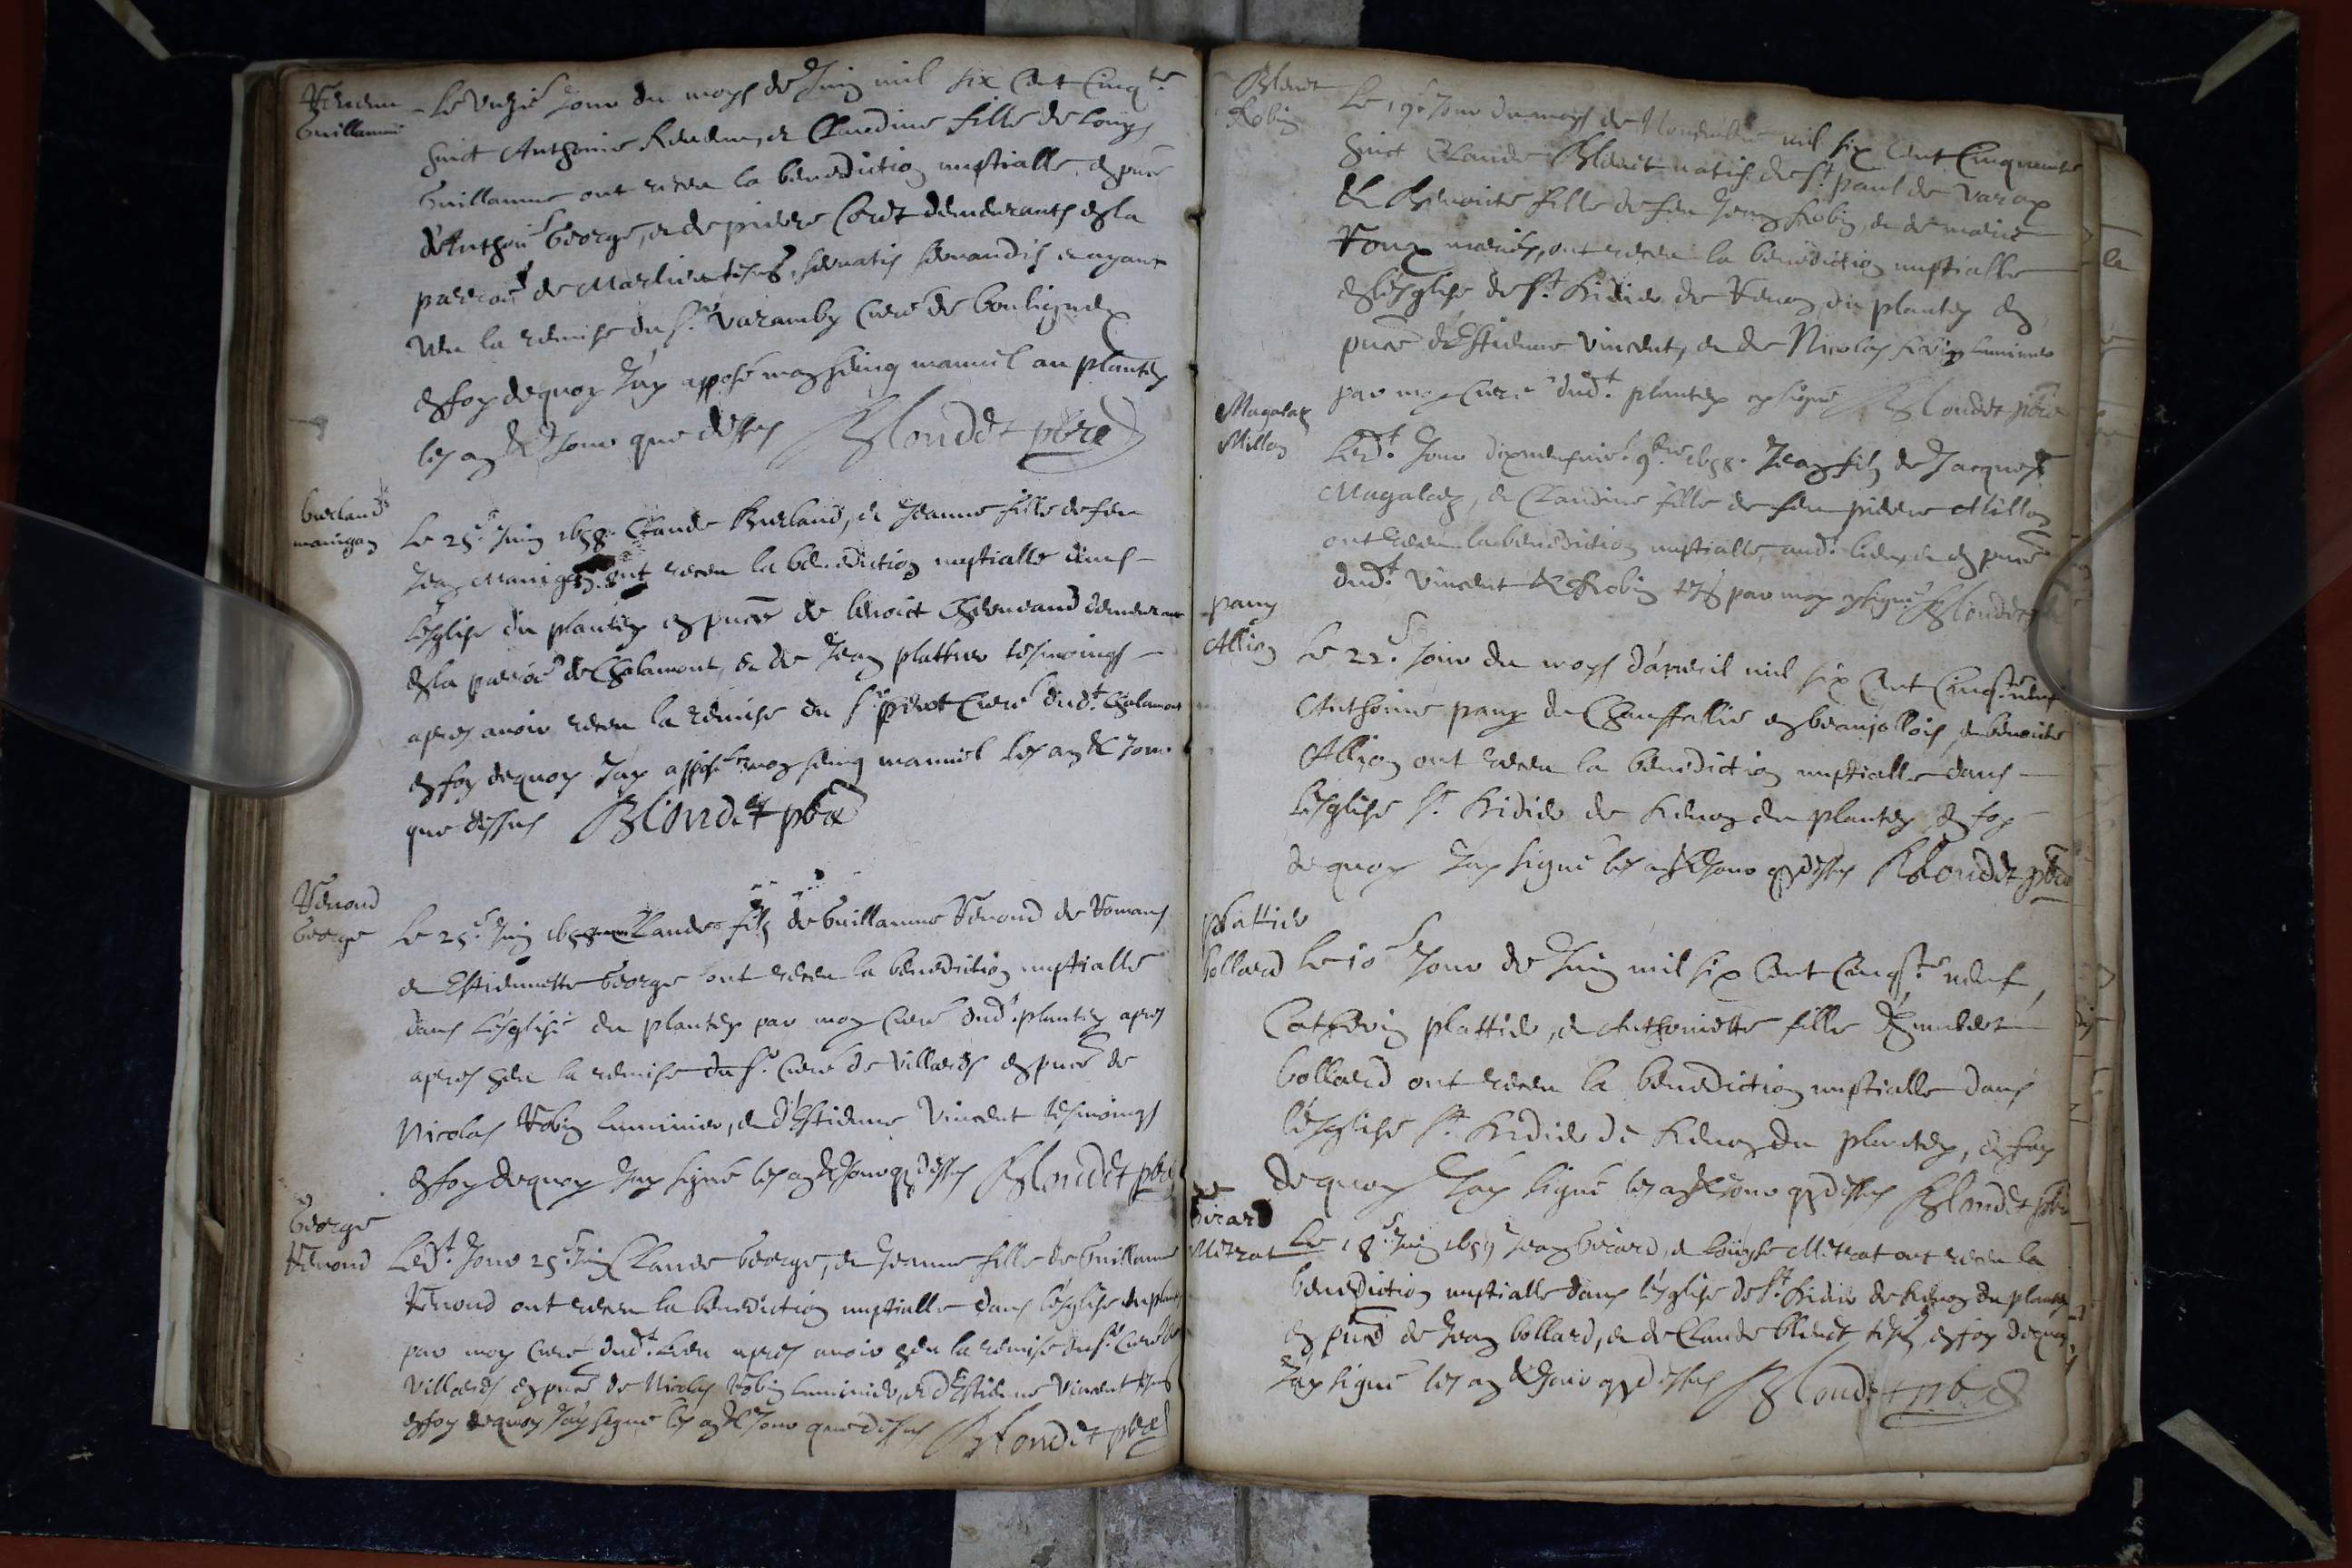 Guillaume
Le unzie jour du moys de Juing mil six Cent Cinqte
huict Anthoine et Claudine fille de Louys
Guillaume ont receu la benediction nuptialle, en pnce
d'Anthoie George, et de pierre demeurants en la
parroe de Marlieu
veu la remise du sr Varamby Curé de bouligneux
en foy dequoy J'ay apposé mon seing manuel au plantey
les an & Jour que dessus Blondet pbre
burland
manigan
Le 25e Juing 1658 Claude Burland, et Jeanne fille de feu
Jean Manigan ont receu la benediction nuptialle dans
l'esglise du plantey en pnce de benoict demeurant
en la parroe de Chalamont, et de Jean plattier tesmoings
apres avoir receu la remise du sr Curé dudt Chalamont
en foy dequoy J'ay apposé mon seing manuel les an & Jour
que dessus Blondet pbre
Renoud
George
Le 25e Juing 1658 Claude filz de Guillaume Renoud de Romans
et Estiennette George ont receu la benediction nuptialle
dans l'esglise du plantey par moy Curé dudt plantey apres
apres heu la remise du sr Curé de Villards en pnce de
Nicolas Robin luminier, et d'Estienne Vincent tesmoings
en foy dequoy J'ay signé les an & Jour q dessus Blondet pbre
George
Renoud
Ledt Jour 25e Juing Claude George, et Jeanne fille de Guillaume
Renoud ont receu la benediction nuptialle dans l'esglise du plantey
par moy Curé dudt lieu apres avoir heu la remise du sr Curé de
Villards en pnce de Nicolas Robin luminier, et d'Estienne Vincent
en foy dequoy J'ay signé les an & Jour que dessus Blondet pbre
Robin
Le 19e Jour du moys de Novembre mil six Cent Cinquante
huict Claude natif de St paul de Varax
& Benoite fille de feu Jean Robin, et de marie
mariés, ont receu la benediction nuptialle
en l'esglise de St Didier de Renon du plantey en
pnce d'Estienne Vincent, et de Nicolas Robin luminier
par moy Curé dudt plantey Blondet pbre
Magalax
Millon
Ledt Jour 9bre 1658 Jean filz de Jacques
Magalax, et Claudine fille de feu pierre Millon
ont receu la benediction nuptialle audt lieu et en pnce
dudt Vincent & Robin par moy Blondet
pany
Allion
Le 22e Jour du moys d'apvril mil six Cent Cinqte neuf
Anthoine pany de en beaujollois, et benoite
Allion ont receu la benediction nuptialle dans
l'esglise St Didier de Renon du plantey en foy
dequoy J'ay signé les an & Jour q dessus Blondet pbre
plattier
bollard
Le 10e Jour de Juing mil six Cent Cinqte neuf,
Catherin plattier, et Anthoinette fille d'humbert
bollard ont receu la benediction nuptialle dans
l'esglise St Didier de Renon du plantey, en foy
dequoy J'ay signé les an & Jour q dessus Blondet pbre
Girard
Metrat
Le 18e Juing 1659 Jean Girard, et Louyse Metrat ont receu la
benediction nuptialle dans l'esglise de St Didier de Renon du plantey
en pnce de Jean bollard, et de Claude en foy dequoy
J'ay signé les an & Jour q dessus Blondet pbre